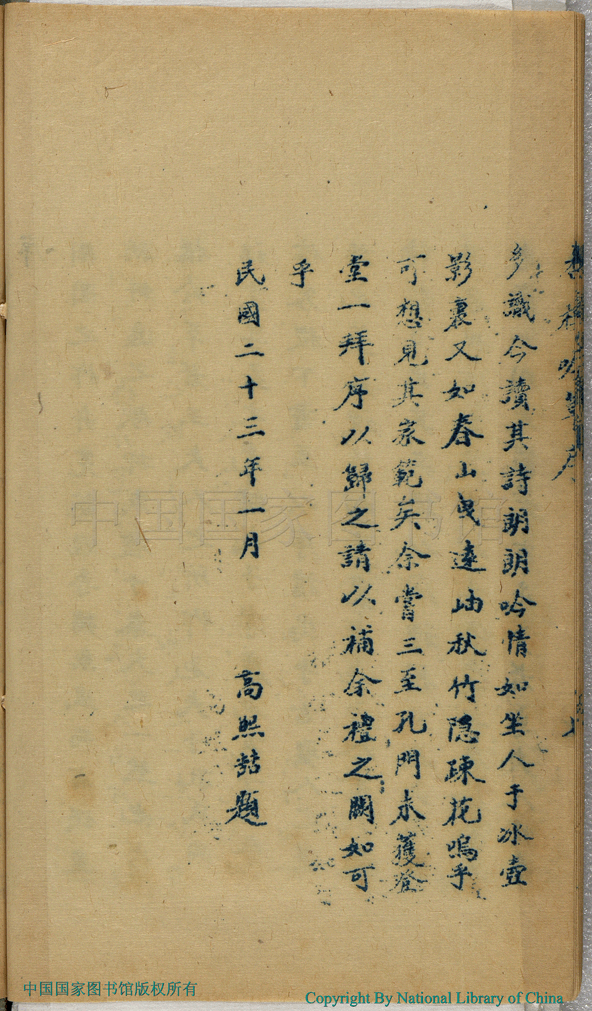 多識今讀其詩朗朗吟情如坐人于冰壺
影裏又如春山曳遠岫秋竹隐疎花嗚乎
可想見其宗範矣余嘗三至孔門未獲登
堂一拜序以歸之請以補余禮之闕如可
乎
民國二十三年一月 高熙喆題
中国国家图书馆
中国国家图书馆版权所有
Copyright By National Library of China